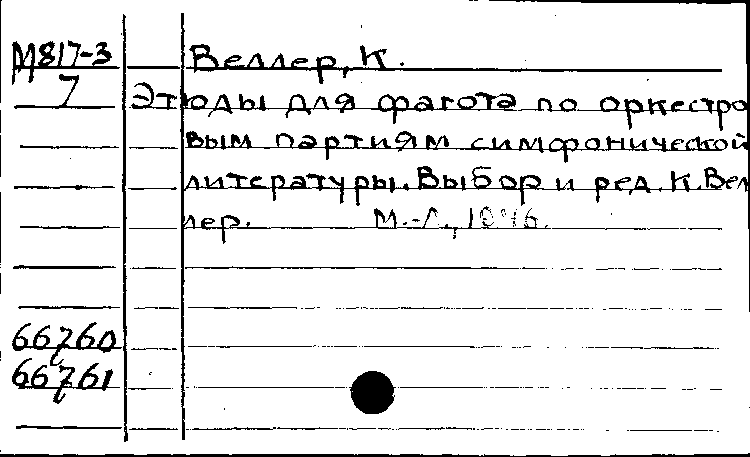 М817-3 Веллер, К.
7 Этюды для фагота по оркестро
вым партиям симфонической
литературы. Выбор и ред. К. Вел
лер. М.-Л., 1946.
66760
66761